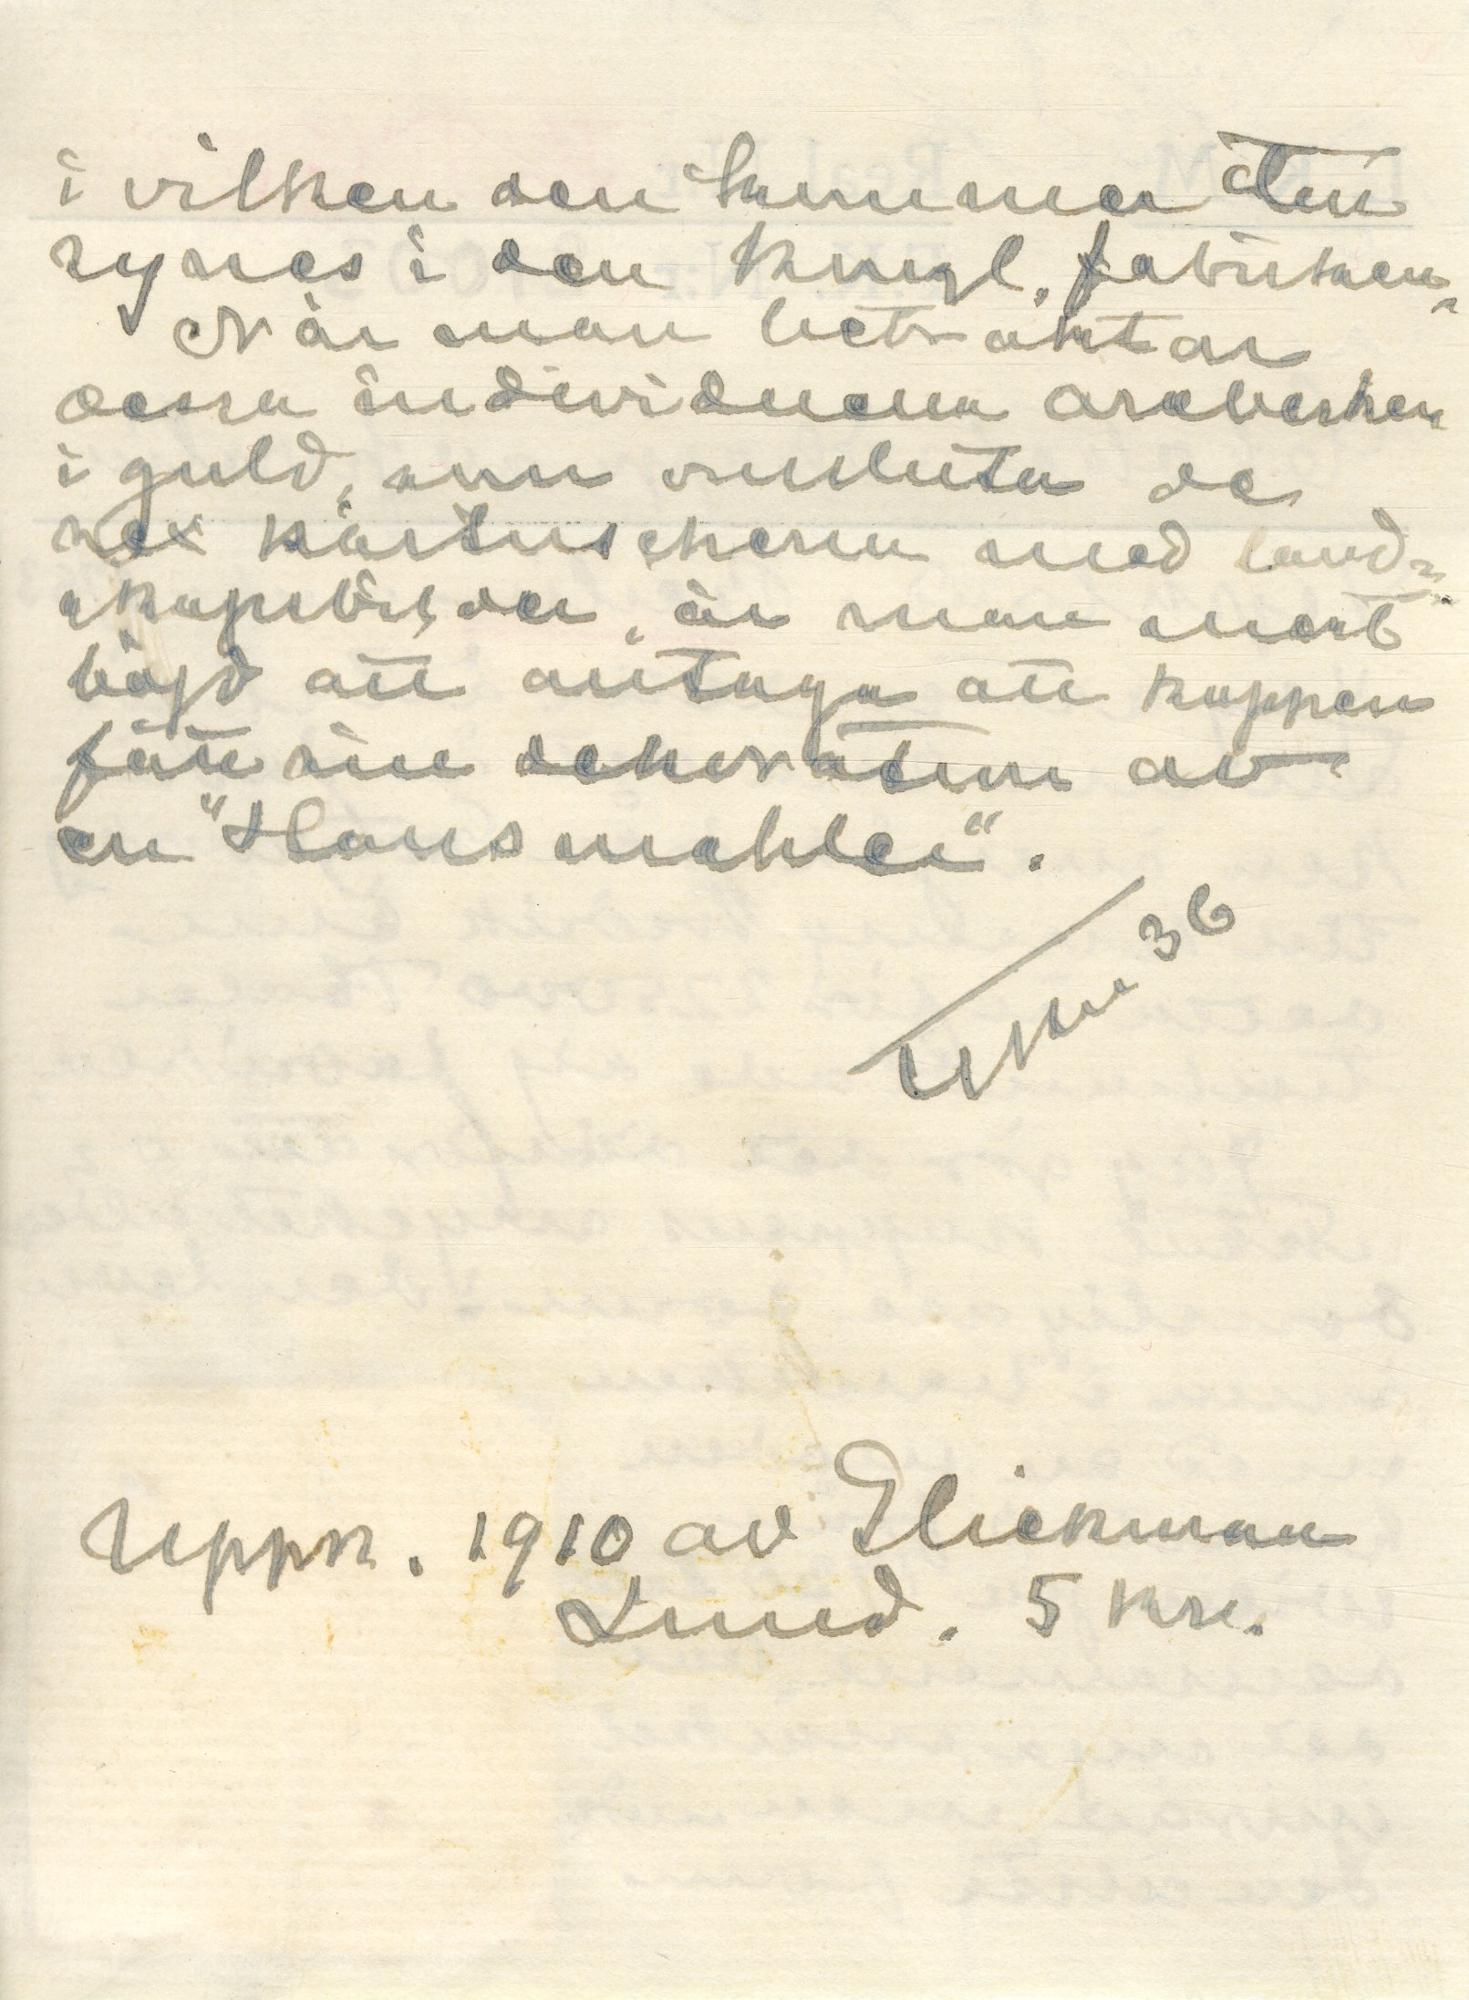 i vilken den kommer till
synes i den kungl. fabriken.
När man betraktar
dessa individuella arabesker
i guld, som omsluta de
sex kartuscherna med land-
skapsbilder, är man mest
böjd att antaga att koppen
fått sin dekoration av
en "Hausmahler".
36
Uppk. 1910 av Glickman
Lund. 5 Kr.